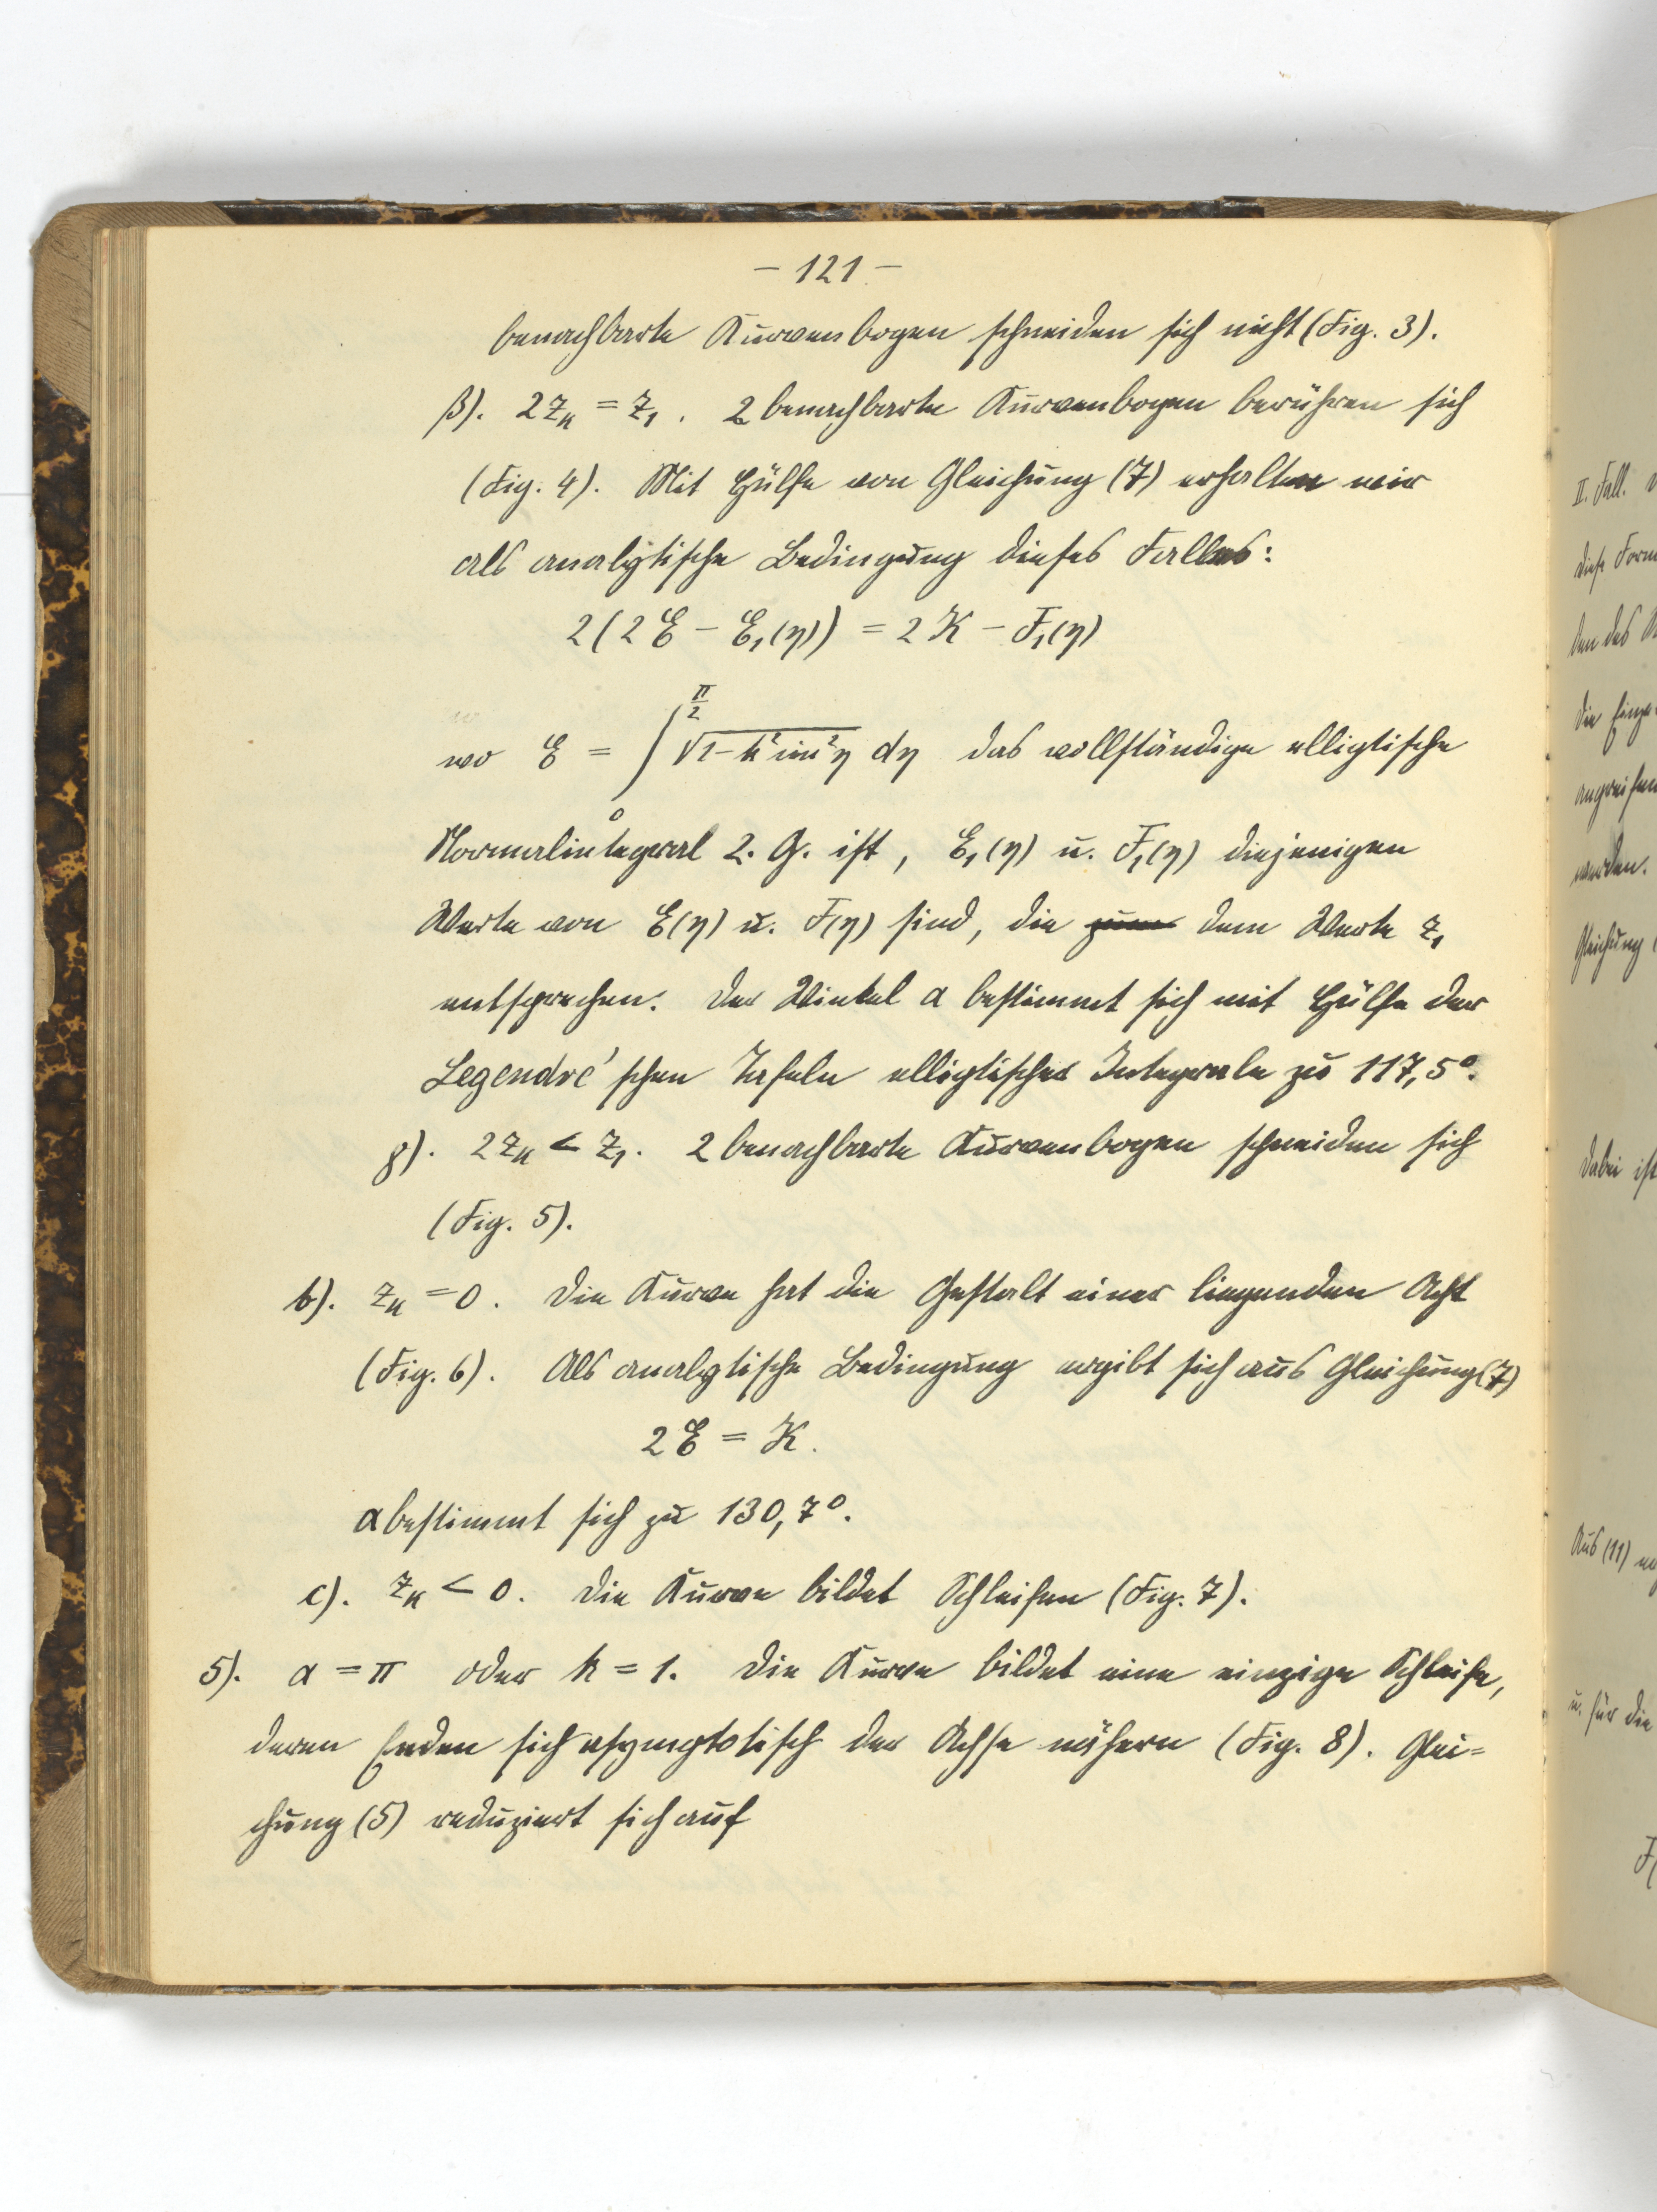 – 121 –
benachbarte Kurvenbogen schneiden sich nicht (Fig. 3).
β). 2 z_k = z_1. 2 benachbarte Kurvenbogen berühren sich
(Fig. 4). Mit Hülfe von Gleichung (7) erhalten wir
als analytische Bedingung dieses Falles:
2(2E – E_1(η)) = 2K – F_1(η)
wo E = ∫_0^{π/2} √(1–k² sin²η) dη das vollständige elliptische
Normalintegral 2. G. ist, E_1(η) u. F_1(η) diejenigen
Werte von E(η) u. F(η) sind, die zum dem Werte z_1
entsprechen. Der Winkel α bestimmt sich mit Hülfe der
Legendre'schen Tafeln elliptischer Integrale zu 117,5°.
γ). 2 z_k < z_1. 2 benachbarte Kurvenbogen schneiden sich
(Fig. 5).
b). z_k = 0. Die Kurve hat die Gestalt einer liegenden Acht
(Fig. 6). Als analytische Bedingung ergibt sich aus Gleichung (7)
2E = K.
α bestimmt sich zu 130,7°.
c). z_k < 0. Die Kurve bildet Schleifen (Fig. 7).
5). α = π oder k = 1. Die Kurve bildet eine einzige Schleife,
deren Enden sich asymptotisch der Achse nähern (Fig. 8). Glei=
chung (5) reduziert sich auf
II. Fall.
diese Form
den des
die Einze
werden.
Gleichung
dabei ist
Aus (11)
u. für die
F(